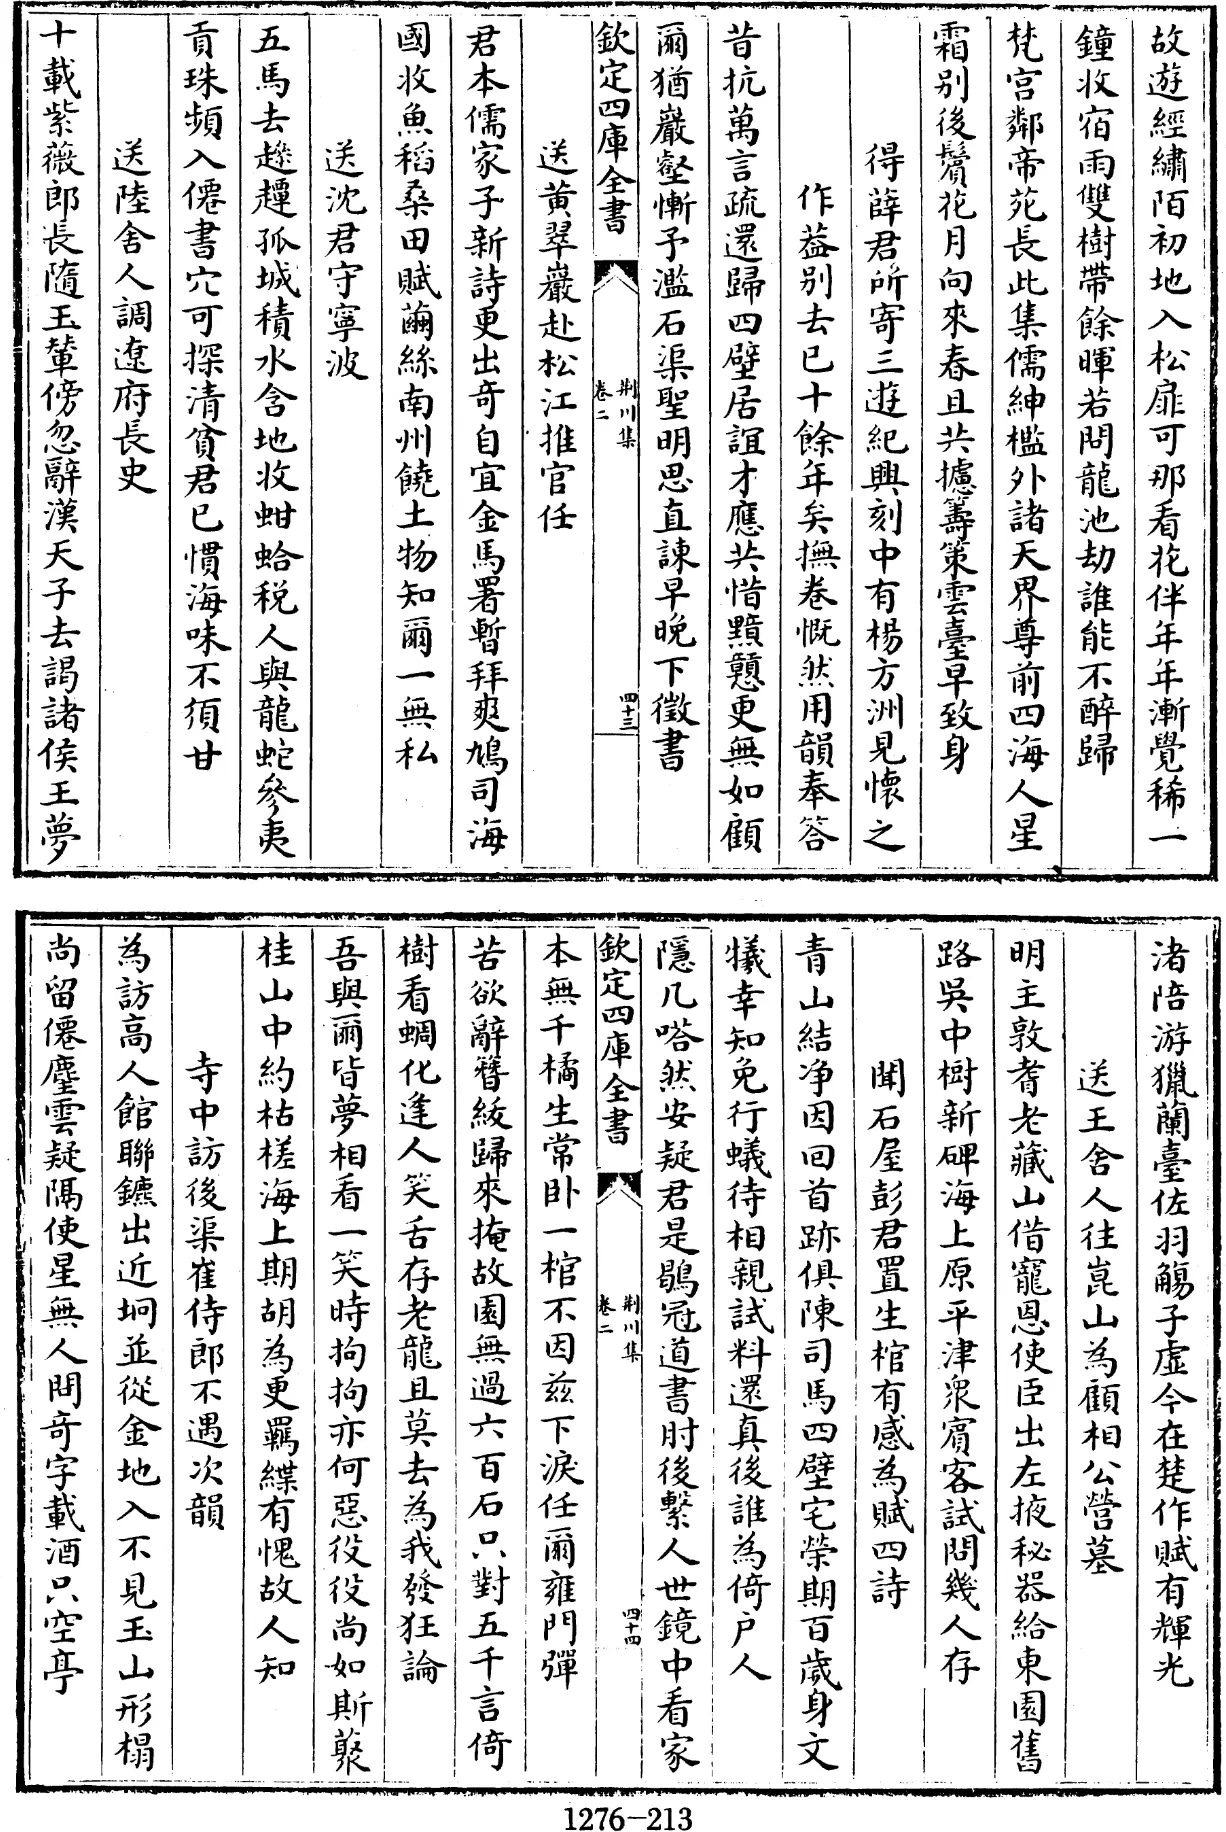 故遊經繡陌初地入松扉可那看花伴年年漸覺稀一
鐘收宿雨雙樹帶餘暉若問龍池劫誰能不醉歸
梵宫鄰帝苑長此集儒紳檻外諸天界尊前四海人星
霜別後鬢花月向來春且共攄籌策雲臺早致身
得薛君所寄三遊紀興刻中有楊方洲見懷之
作葢別去已十餘年矣撫卷慨然用韻奉答
昔抗萬言疏還歸四壁居誼才應共惜黯戇更無如顧
爾猶巖壑慚予濫石渠聖明思直諫早晚下徵書
欽定四庫全書
荆川集
卷二
四十三
送黄翠巖赴松江推官任
君本儒家子新詩更出奇自宜金馬署暫拜爽鳩司海
國收魚稻桑田賦繭絲南州饒土物知爾一無私
送沈君守寧波
五馬去趍趯孤城積水含地收蚶蛤税人與龍蛇參夷
貢珠頻入僊書穴可探清貧君已慣海味不須甘
送陸舍人調遼府長史
十載紫薇郎長隨玉輦傍忽辭漢天子去謁諸侯王夢
渚陪游獵蘭臺佐羽觴子虛今在楚作賦有輝光
送王舍人往崑山為顧相公營墓
明主敦耆老藏山借寵恩使臣出左掖秘器給東園舊
路吳中樹新碑海上原平津衆賓客試問幾人存
聞石屋彭君置生棺有感為賦四詩
青山結净因回首跡俱陳司馬四壁宅榮期百歲身文
犧幸知免行蟻待相親試料還真後誰為倚户人
隱几嗒然安疑君是鶡冠道書肘後繫人世鏡中看家
欽定四庫全書
荆川集
卷二
四十四
本無千橘生常卧一棺不因兹下淚任爾雍門彈
苦欲辭簪紱歸來掩故園無過六百石只對五千言倚
樹看蜩化逢人笑舌存老龍且莫去為我發狂論
吾與爾皆夢相看一笑時拘拘亦何惡役役尚如斯藂
桂山中約枯槎海上期胡為更羈緤有愧故人知
寺中訪後渠崔侍郎不遇次韻
為訪高人館聯鑣出近坰並從金地入不見玉山形榻
尚留僊塵雲疑隔使星無人問奇字載酒只空亭
1276-213